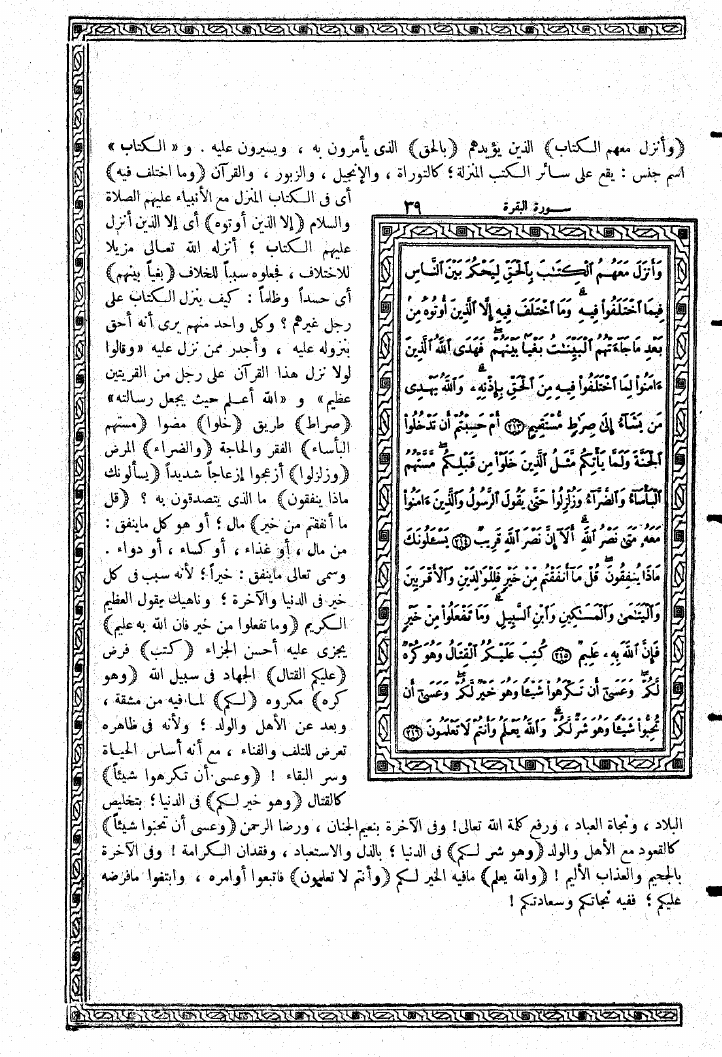 (وأنزل معهم الكتاب) الذين يؤيدهم (بالحق) الذى يأمرون به ، ويسيرون عليه . و « الكتاب »
اسم جنس : يقع على سائر الكتب المنزلة ؛ كالتوراة ، والإنجيل ، والزبور ، والقرآن (وما اختلف فيه)
أى فى الكتاب المنزل مع الأنبياء عليهم الصلاة
والسلام (إلا الذين أوتوه) أى إلا الذين أنزل
عليهم الكتاب ؛ أنزله الله تعالى مزيلا
للاختلاف ، فجعلوه سبباً للخلاف (بغياً بينهم)
أى حسداً وظلماً : كيف ينزل الكتاب على
رجل غيرهم ؟ وكل واحد منهم يرى أنه أحق
بنزوله عليه ، وأجدر ممن نزل عليه «وقالوا
لولا نزل هذا القرآن على رجل من القريتين
عظيم» و «الله أعلم حيث يجعل رسالته»
(صراط) طريق (خلوا) مضوا (مستهم
البأساء) الفقر والحاجة (والضراء) المرض
(وزلزلوا) أزعجوا إزعاجاً شديداً (يسألونك
ماذا ينفقون) ما الذى يتصدقون به ؟ (قل
ما أنفقتم من خير) مال ؛ أو هو كل ماينفق :
من مال ، أو غذاء ، أو كساء ، أو دواء .
وسمى تعالى ماينفق : خيراً ؛ لأنه سبب فى كل
خير فى الدنيا والآخرة ؛ وناهيك بقول العظيم
الكريم (وما تفعلوا من خير فان الله به عليم)
يجزى عليه أحسن الجزاء (كتب) فرض
(عليكم القتال) الجهاد فى سبيل الله (وهو
كره) مكروه (لكم) لما فيه من مشقة ،
وبعد عن الأهل والولد ؛ ولأنه فى ظاهره
تعرض للتلف والفناء ، مع أنه أساس الحياة
وسر البقاء ! (وعسى أن تكرهوا شيئاً)
كالقتال (وهو خير لكم) فى الدنيا ؛ بتخليص
سورة البقرة ٣٩
وَأَنزَلَ مَعَهُمُ ٱلْكِتَٰبَ بِٱلْحَقِّ لِيَحْكُمَ بَيْنَ ٱلنَّاسِ
فِيمَا ٱخْتَلَفُوا۟ فِيهِ ۚ وَمَا ٱخْتَلَفَ فِيهِ إِلَّا ٱلَّذِينَ أُوتُوهُ مِنۢ
بَعْدِ مَا جَآءَتْهُمُ ٱلْبَيِّنَٰتُ بَغْيًۢا بَيْنَهُمْ ۖ فَهَدَى ٱللَّهُ ٱلَّذِينَ
ءَامَنُوا۟ لِمَا ٱخْتَلَفُوا۟ فِيهِ مِنَ ٱلْحَقِّ بِإِذْنِهِۦ ۗ وَٱللَّهُ يَهْدِى
مَن يَشَآءُ إِلَىٰ صِرَٰطٍ مُّسْتَقِيمٍ ﴿٢١٣﴾ أَمْ حَسِبْتُمْ أَن تَدْخُلُوا۟
ٱلْجَنَّةَ وَلَمَّا يَأْتِكُم مَّثَلُ ٱلَّذِينَ خَلَوْا۟ مِن قَبْلِكُم ۖ مَّسَّتْهُمُ
ٱلْبَأْسَآءُ وَٱلضَّرَّآءُ وَزُلْزِلُوا۟ حَتَّىٰ يَقُولَ ٱلرَّسُولُ وَٱلَّذِينَ ءَامَنُوا۟
مَعَهُۥ مَتَىٰ نَصْرُ ٱللَّهِ ۗ أَلَآ إِنَّ نَصْرَ ٱللَّهِ قَرِيبٌ ﴿٢١٤﴾ يَسْـَٔلُونَكَ
مَاذَا يُنفِقُونَ ۖ قُلْ مَآ أَنفَقْتُم مِّنْ خَيْرٍ فَلِلْوَٰلِدَيْنِ وَٱلْأَقْرَبِينَ
وَٱلْيَتَٰمَىٰ وَٱلْمَسَٰكِينِ وَٱبْنِ ٱلسَّبِيلِ ۗ وَمَا تَفْعَلُوا۟ مِنْ خَيْرٍ
فَإِنَّ ٱللَّهَ بِهِۦ عَلِيمٌ ﴿٢١٥﴾ كُتِبَ عَلَيْكُمُ ٱلْقِتَالُ وَهُوَ كُرْهٌ
لَّكُمْ ۖ وَعَسَىٰٓ أَن تَكْرَهُوا۟ شَيْـًٔا وَهُوَ خَيْرٌ لَّكُمْ ۖ وَعَسَىٰٓ أَن
تُحِبُّوا۟ شَيْـًٔا وَهُوَ شَرٌّ لَّكُمْ ۗ وَٱللَّهُ يَعْلَمُ وَأَنتُمْ لَا تَعْلَمُونَ ﴿٢١٦﴾
البلاد ، ونجاة العباد ، ورفع كلمة الله تعالى! وفى الآخرة بنعيم الجنان ، ورضا الرحمن (وعسى أن تحبوا شيئاً)
كالقعود مع الأهل والولد (وهو شر لكم) فى الدنيا ؛ بالذل والاستعباد ، وفقدان الكرامة ! وفى الآخرة
بالجحيم والعذاب الأليم ! (والله يعلم) مافيه الخير لكم (وأنتم لا تعلمون) فاتبعوا أوامره ، وابتغوا مافرضه
عليكم ؛ ففيه نجاتكم وسعادتكم !